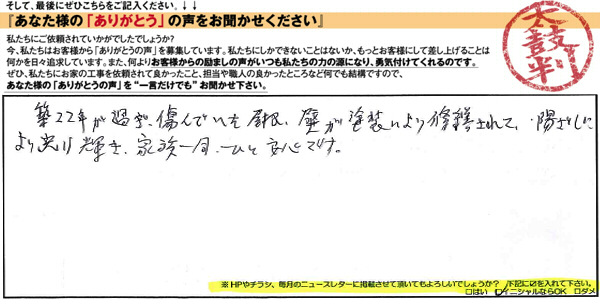 そして、最後にぜひこちらをご記入ください。↓↓
『あなた様の「ありがとう」の声をお聞かせください』
私たちにご依頼されていかがでしたでしょうか?
今、私たちはお客様から「ありがとうの声」を募集しています。私たちにしかできないことはないか、もっとお客様にして差し上げることは
何かを日々追求しています。また、何よりお客様からの励ましの声がいつも私たちの力の源になり、勇気付けてくれるのです。
ぜひ、私たちにお家の工事を依頼されて良かったこと、担当や職人の良かったところなど何でも結構ですので、
あなた様の「ありがとうの声」を“一言だけでも”お聞かせ下さい。
太鼓判
築22年が過ぎ、傷んでいた屋根、壁が塗装により修繕されて、陽ざしに
より光り輝き、家族一同、一安心です。
※HPやチラシ、毎月のニュースレターに掲載させて頂いてもよろしいでしょうか? 下記に☑を入れて下さい。
□はい ☑イニシャルならOK □ダメ